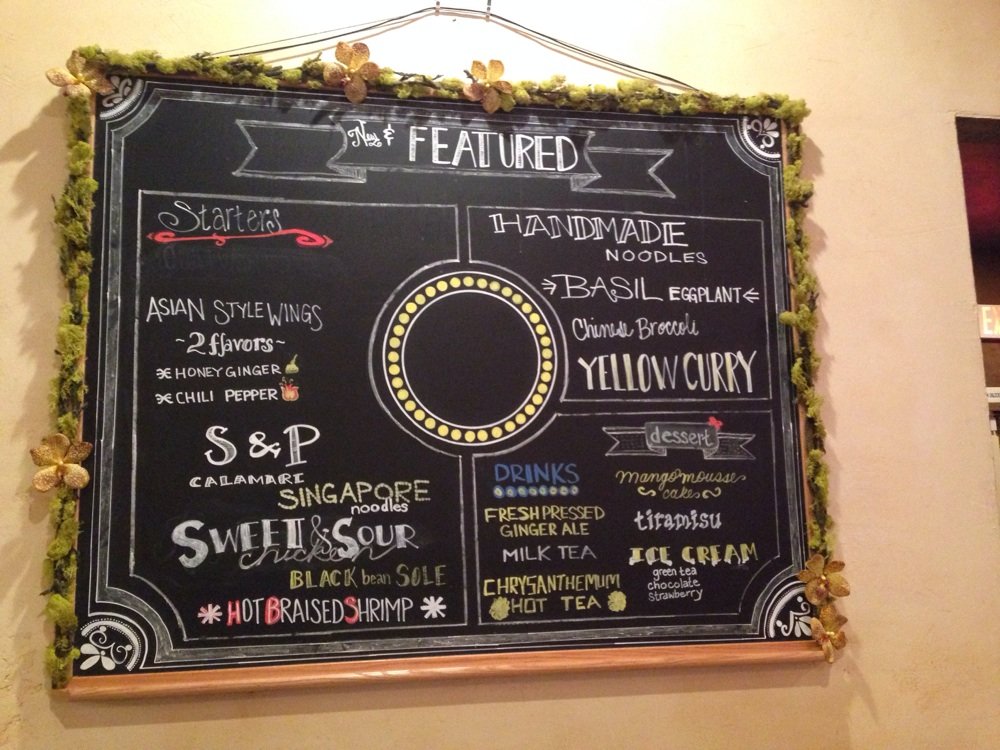 New & FEATURED
Starters
ASIAN STYLE WINGS
~2 flavors~
HONEY GINGER
CHILI PEPPER
S & P
CALAMARI
SINGAPORE
noodles
SWEET & SOUR
chicken
BLACK bean SOLE
HOT BRAISED SHRIMP
HANDMADE
NOODLES
BASIL EGGPLANT
Chinese Broccoli
YELLOW CURRY
DRINKS
FRESH PRESSED
GINGER ALE
MILK TEA
CHRYSANTHEMUM
HOT TEA
dessert
mango mousse
cake
tiramisu
ICE CREAM
green tea
chocolate
strawberry